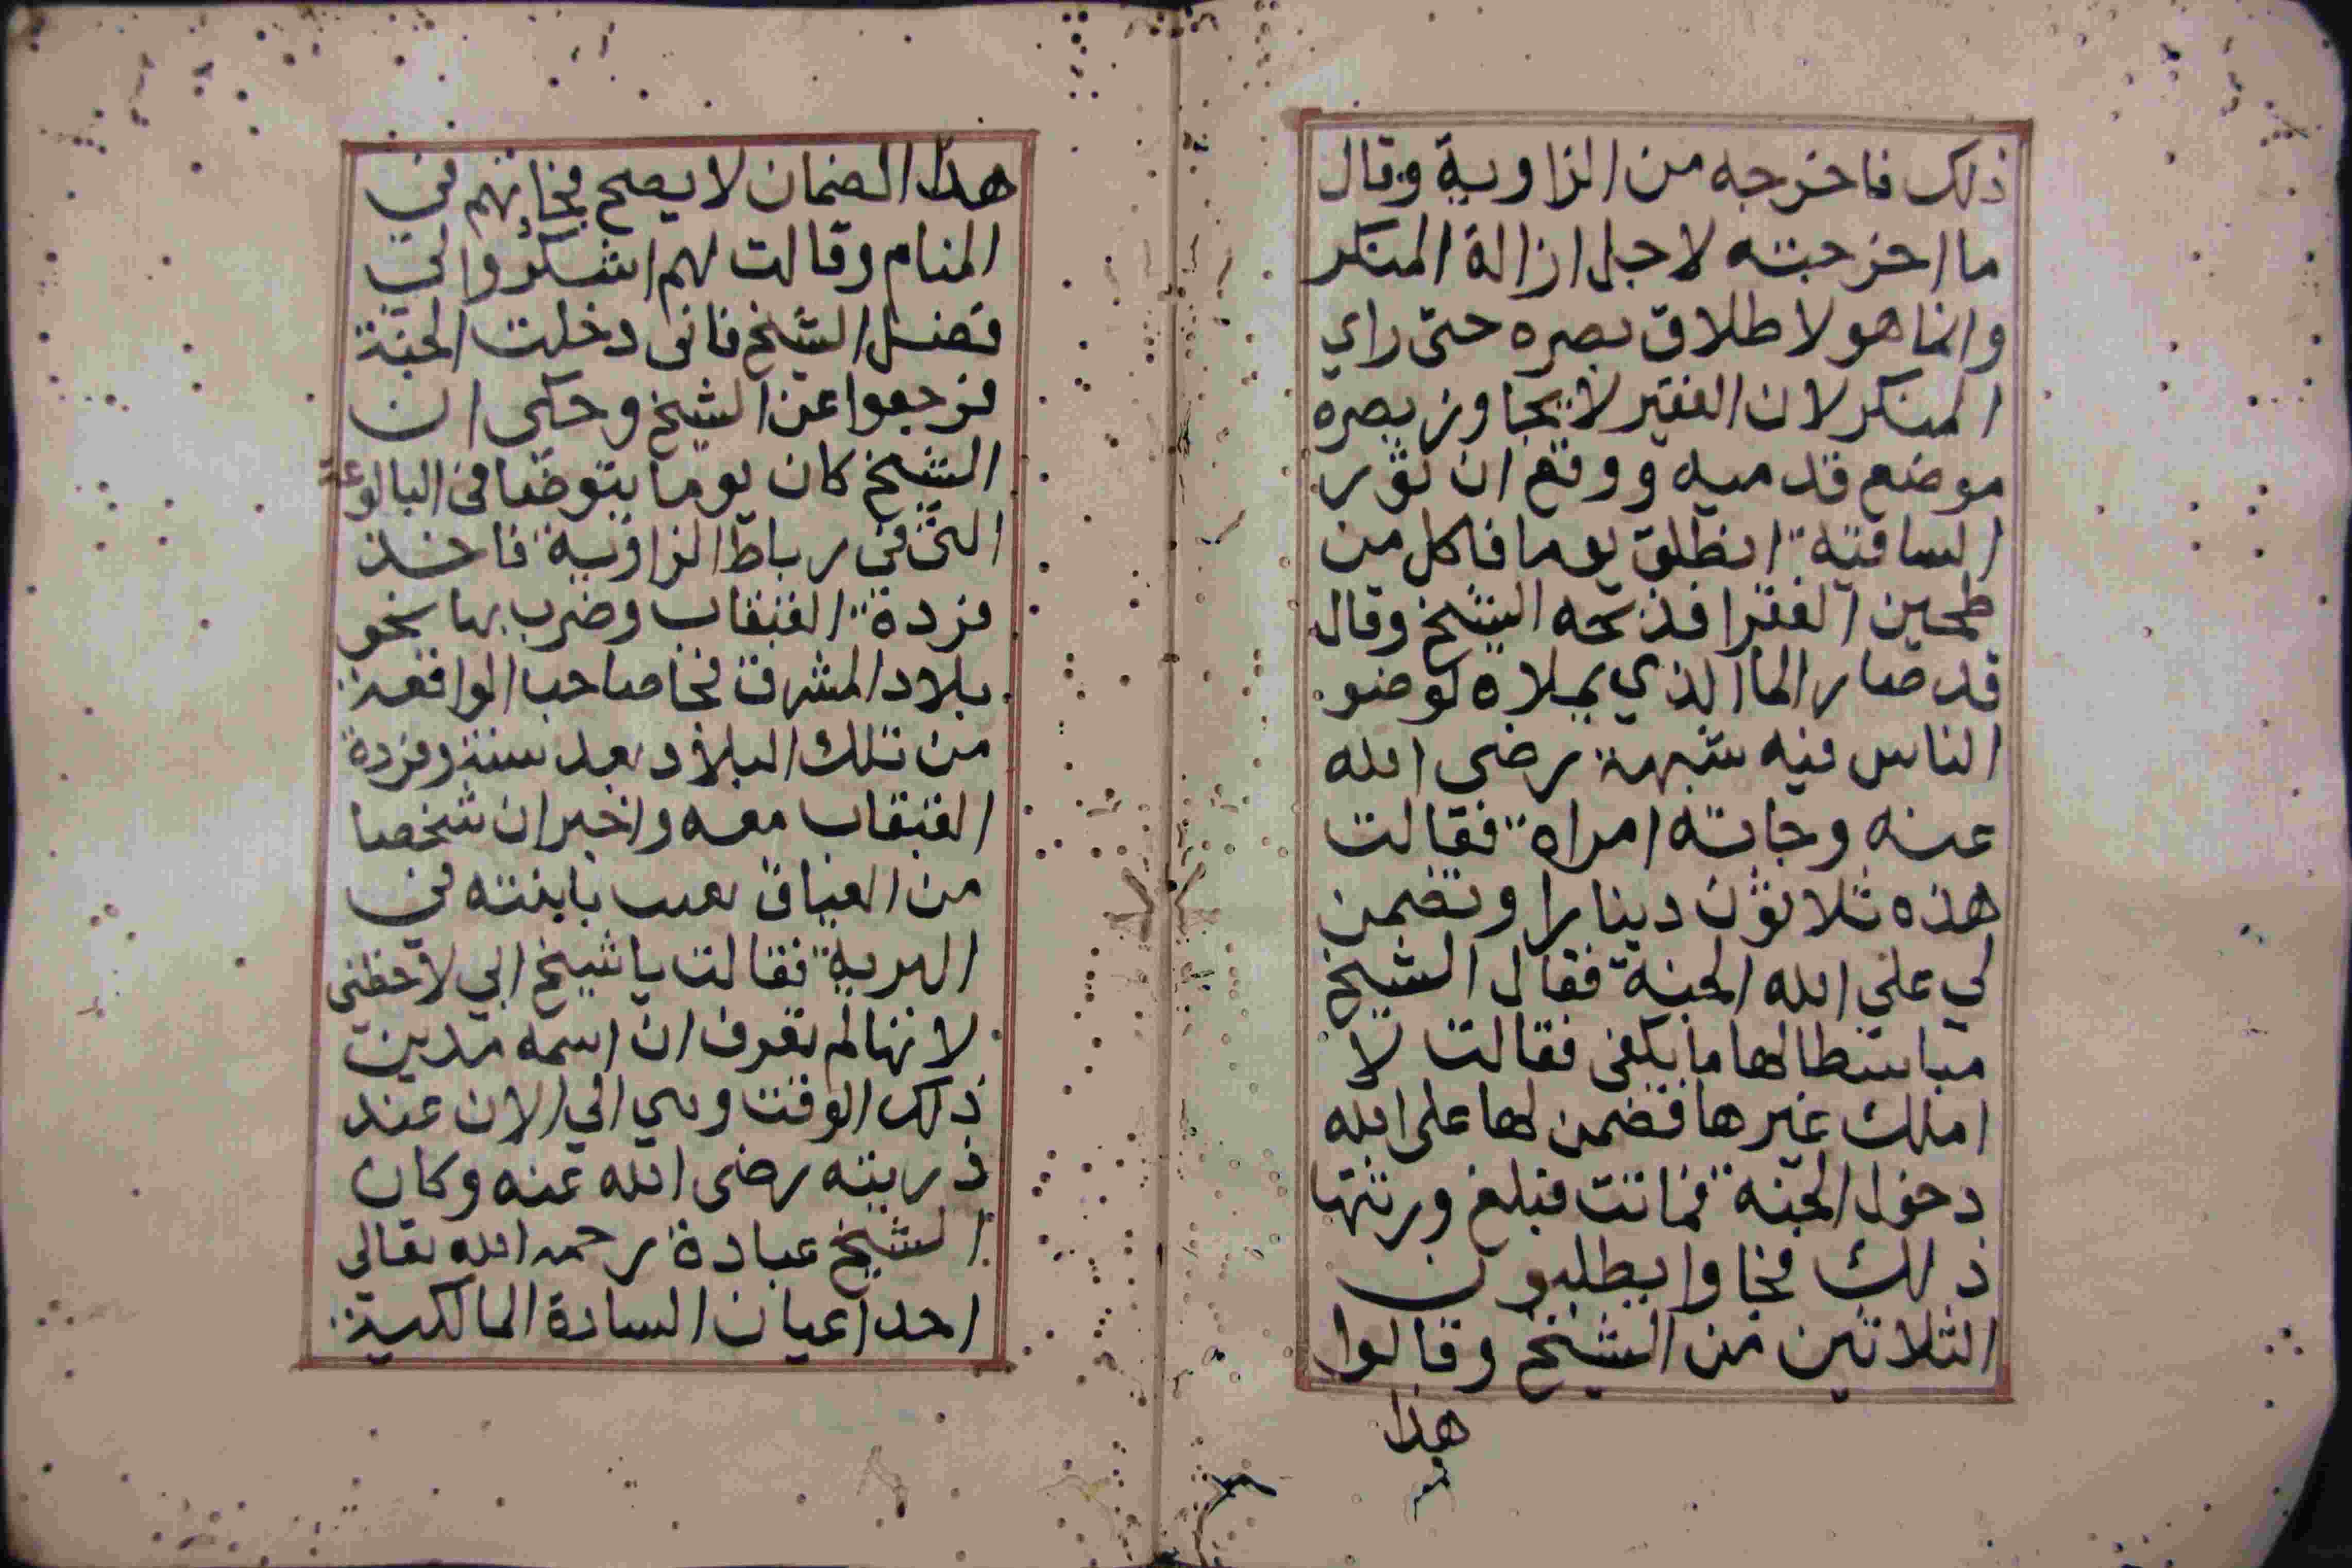 ذلك فاخرجه من الزاوية وقال
ما اخرجته لاجل ازالة المنكر
وانما هو لاطلاق بصره حتى راي
المنكر لان الفقير لا يجاوز بصره
موضع قدميه ووقع ان ثور
الساقية انطلق يوما فاكل من
طحين الفقرا فذبحه الشيخ وقال
قد صار الما الذي يملاه لوضو
الناس فيه شبهة رضى الله
عنه وجاته امراة فقالت
هذه ثلاثون دينارا وتضمن
لي على الله الجنة فقال الشيخ
مباسطا لها ما يكفى فقالت لا
املك غيرها فضمن لها على الله
دخول الجنة فماتت فبلغ ورثتها
ذلك فجاوا يطلبون
الثلاثين من الشيخ وقالوا
هذا
هذا الضمان لا يصح فجاتهم في
المنام وقالت لهم اشكروا لي
فضل الشيخ فانى دخلت الجنة
فرجعوا عن الشيخ وحكي ان
الشيخ كان يوما يتوضا فى البالوعة
التى في رباط الزاوية فاخذ
فردة القبقاب وضرب بها نحو
بلاد المشرق فجا صاحب الواقعة
من تلك البلاد بعد سنة وفردة
القبقاب معه واخبر ان شخصا
من العياق عبث بابنته في
البرية فقالت يا شيخ ابي لاحظنى
لانها لم تعرف ان اسمه مدين
ذلك الوقت وهي الي الان عند
ذريته رضى الله عنه وكان
الشيخ عبادة رحمه الله تعالي
احد اعيان السادة المالكية